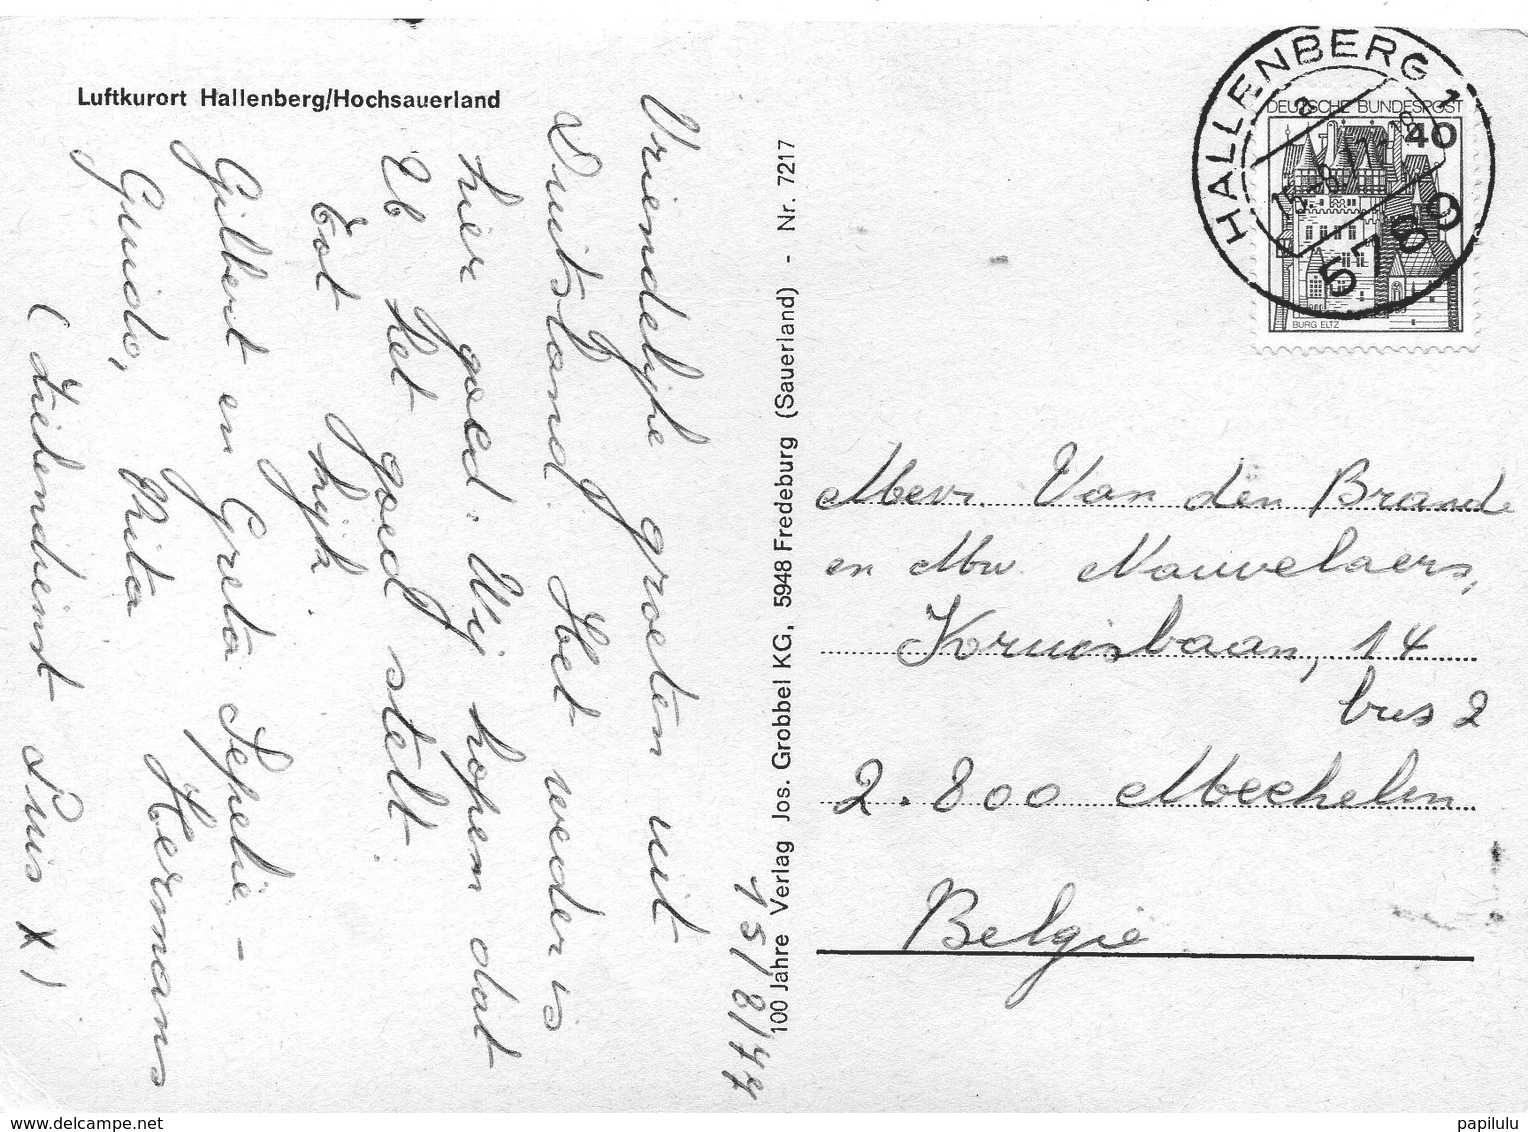 Luftkurort Hallenberg/Hochsauerland
15/8/77
Vriendelijke groeten uit
Duitsland. Het weder is
hier goed. Wij hopen dat
U het goed stelt.
Tot Kijk
Gilbert en Greta Sepelie -
Hermans
Guido, Rita
(Liedendienst Puis X)
100 Jahre Verlag Jos. Grobbel KG, 5948 Fredeburg (Sauerland) - Nr. 7217
HALLENBERG 1
a
5789
DEUTSCHE BUNDESPOST
40
BURG ELTZ
Mevr. Van den Brande
en Mw. Nauwelaers,
baan, 14
bus 2
2.800 Mechelen
België
www.delcampe.net
papilulu